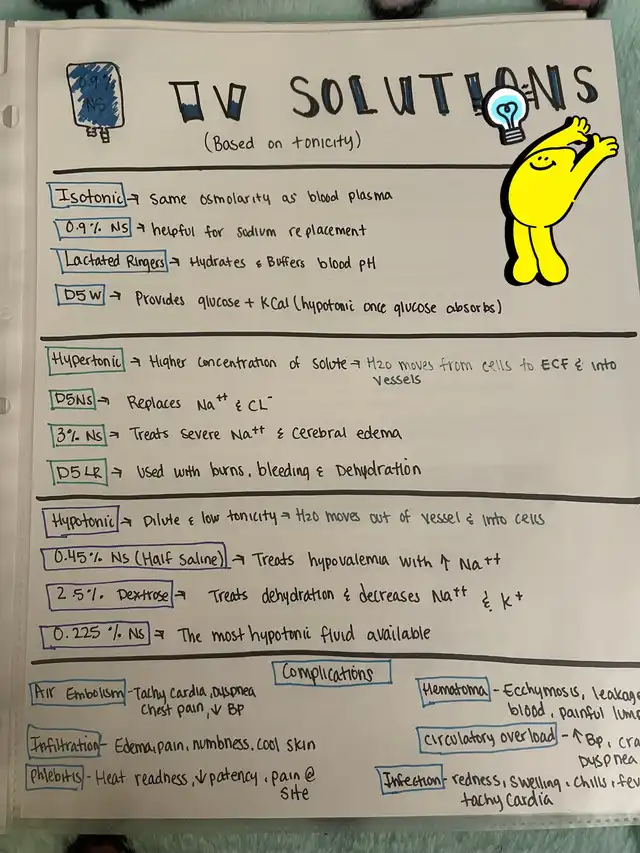 0.9% NS
IV SOLUTIONS
(Based on tonicity)
Isotonic → Same osmolarity as blood plasma
0.9% NS → helpful for sodium replacement
Lactated Ringers → Hydrates & Buffers blood pH
D5W → Provides glucose + KCal (hypotonic once glucose absorbs)
Hypertonic → Higher concentration of solute → H2O moves from cells to ECF & into
vessels
D5NS → Replaces Na++ & CL-
3% NS → Treats severe Na++ & cerebral edema
D5 LR → Used with burns, bleeding & Dehydration
Hypotonic → Dilute & low tonicity → H2O moves out of vessel & into cells
0.45% NS (Half Saline) → Treats hypovalemia with ↑ Na++
2.5% Dextrose → Treats dehydration & decreases Na++ & K+
0.225% NS → The most hypotonic fluid available
Complications
Air Embolism - Tachy cardia, Dyspnea
Chest pain, ↓ BP
Infiltration - Edema, pain, numbness, cool skin
Phlebitis - Heat readness, ↓ patency, pain @
site
Hematoma - Ecchymosis, leakage
blood, painful lump
circulatory overload - ↑ Bp, cra
Dyspnea
Infection - redness, swelling, chills, fev
tachy cardia